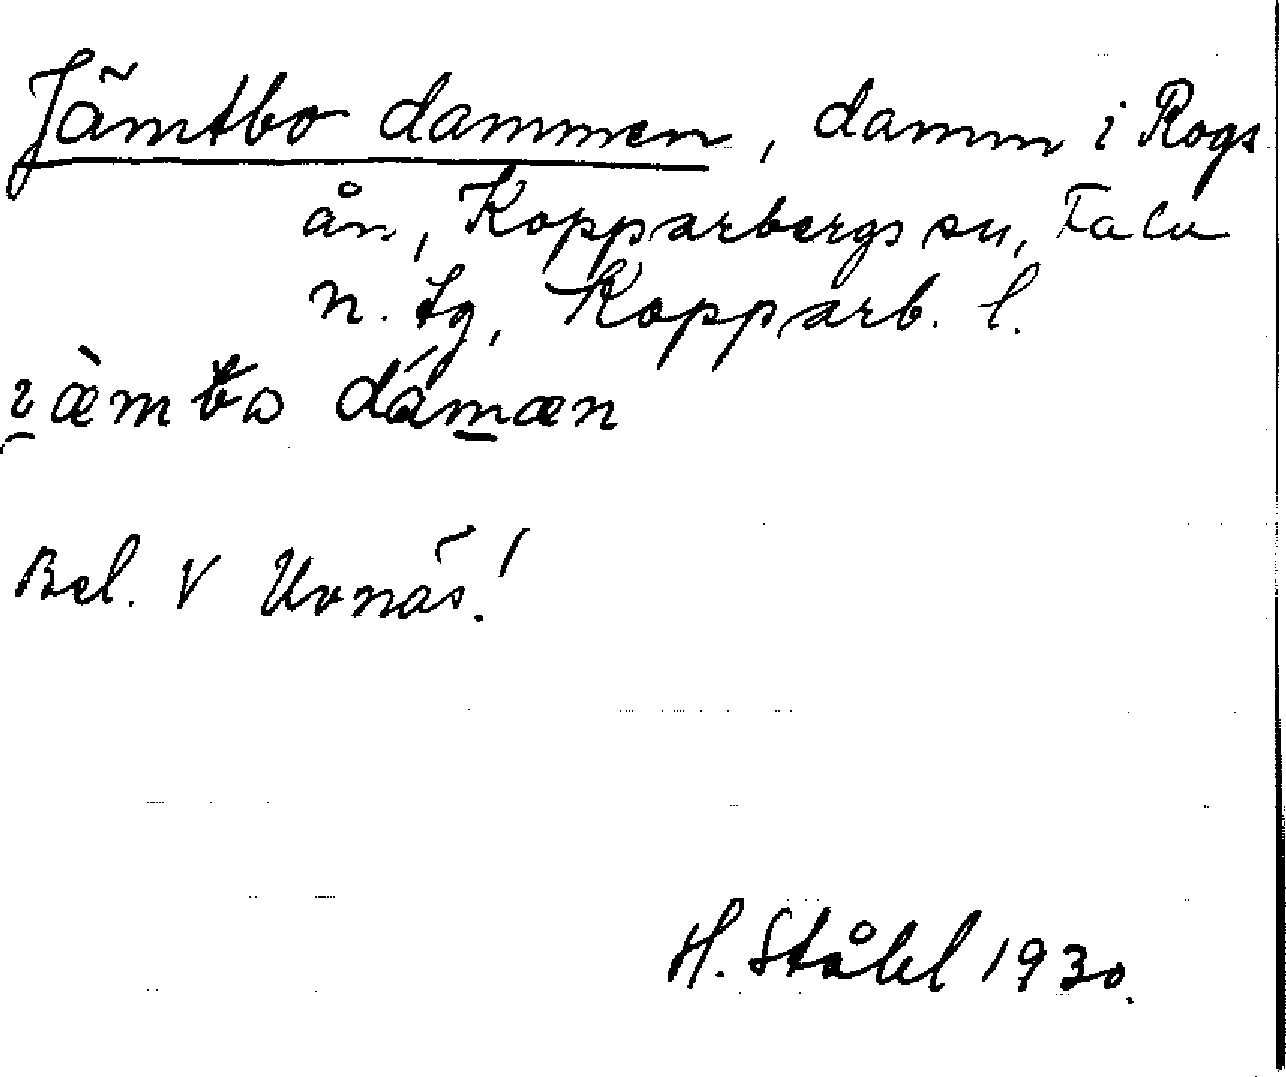 Jämtbo dammen, damm i Rogs
ån, Kopparbergs sn, Falu
n. tg, Kopparb. l.
dámæn
Bel. V Uvnäs!
H. Ståhl 1930.